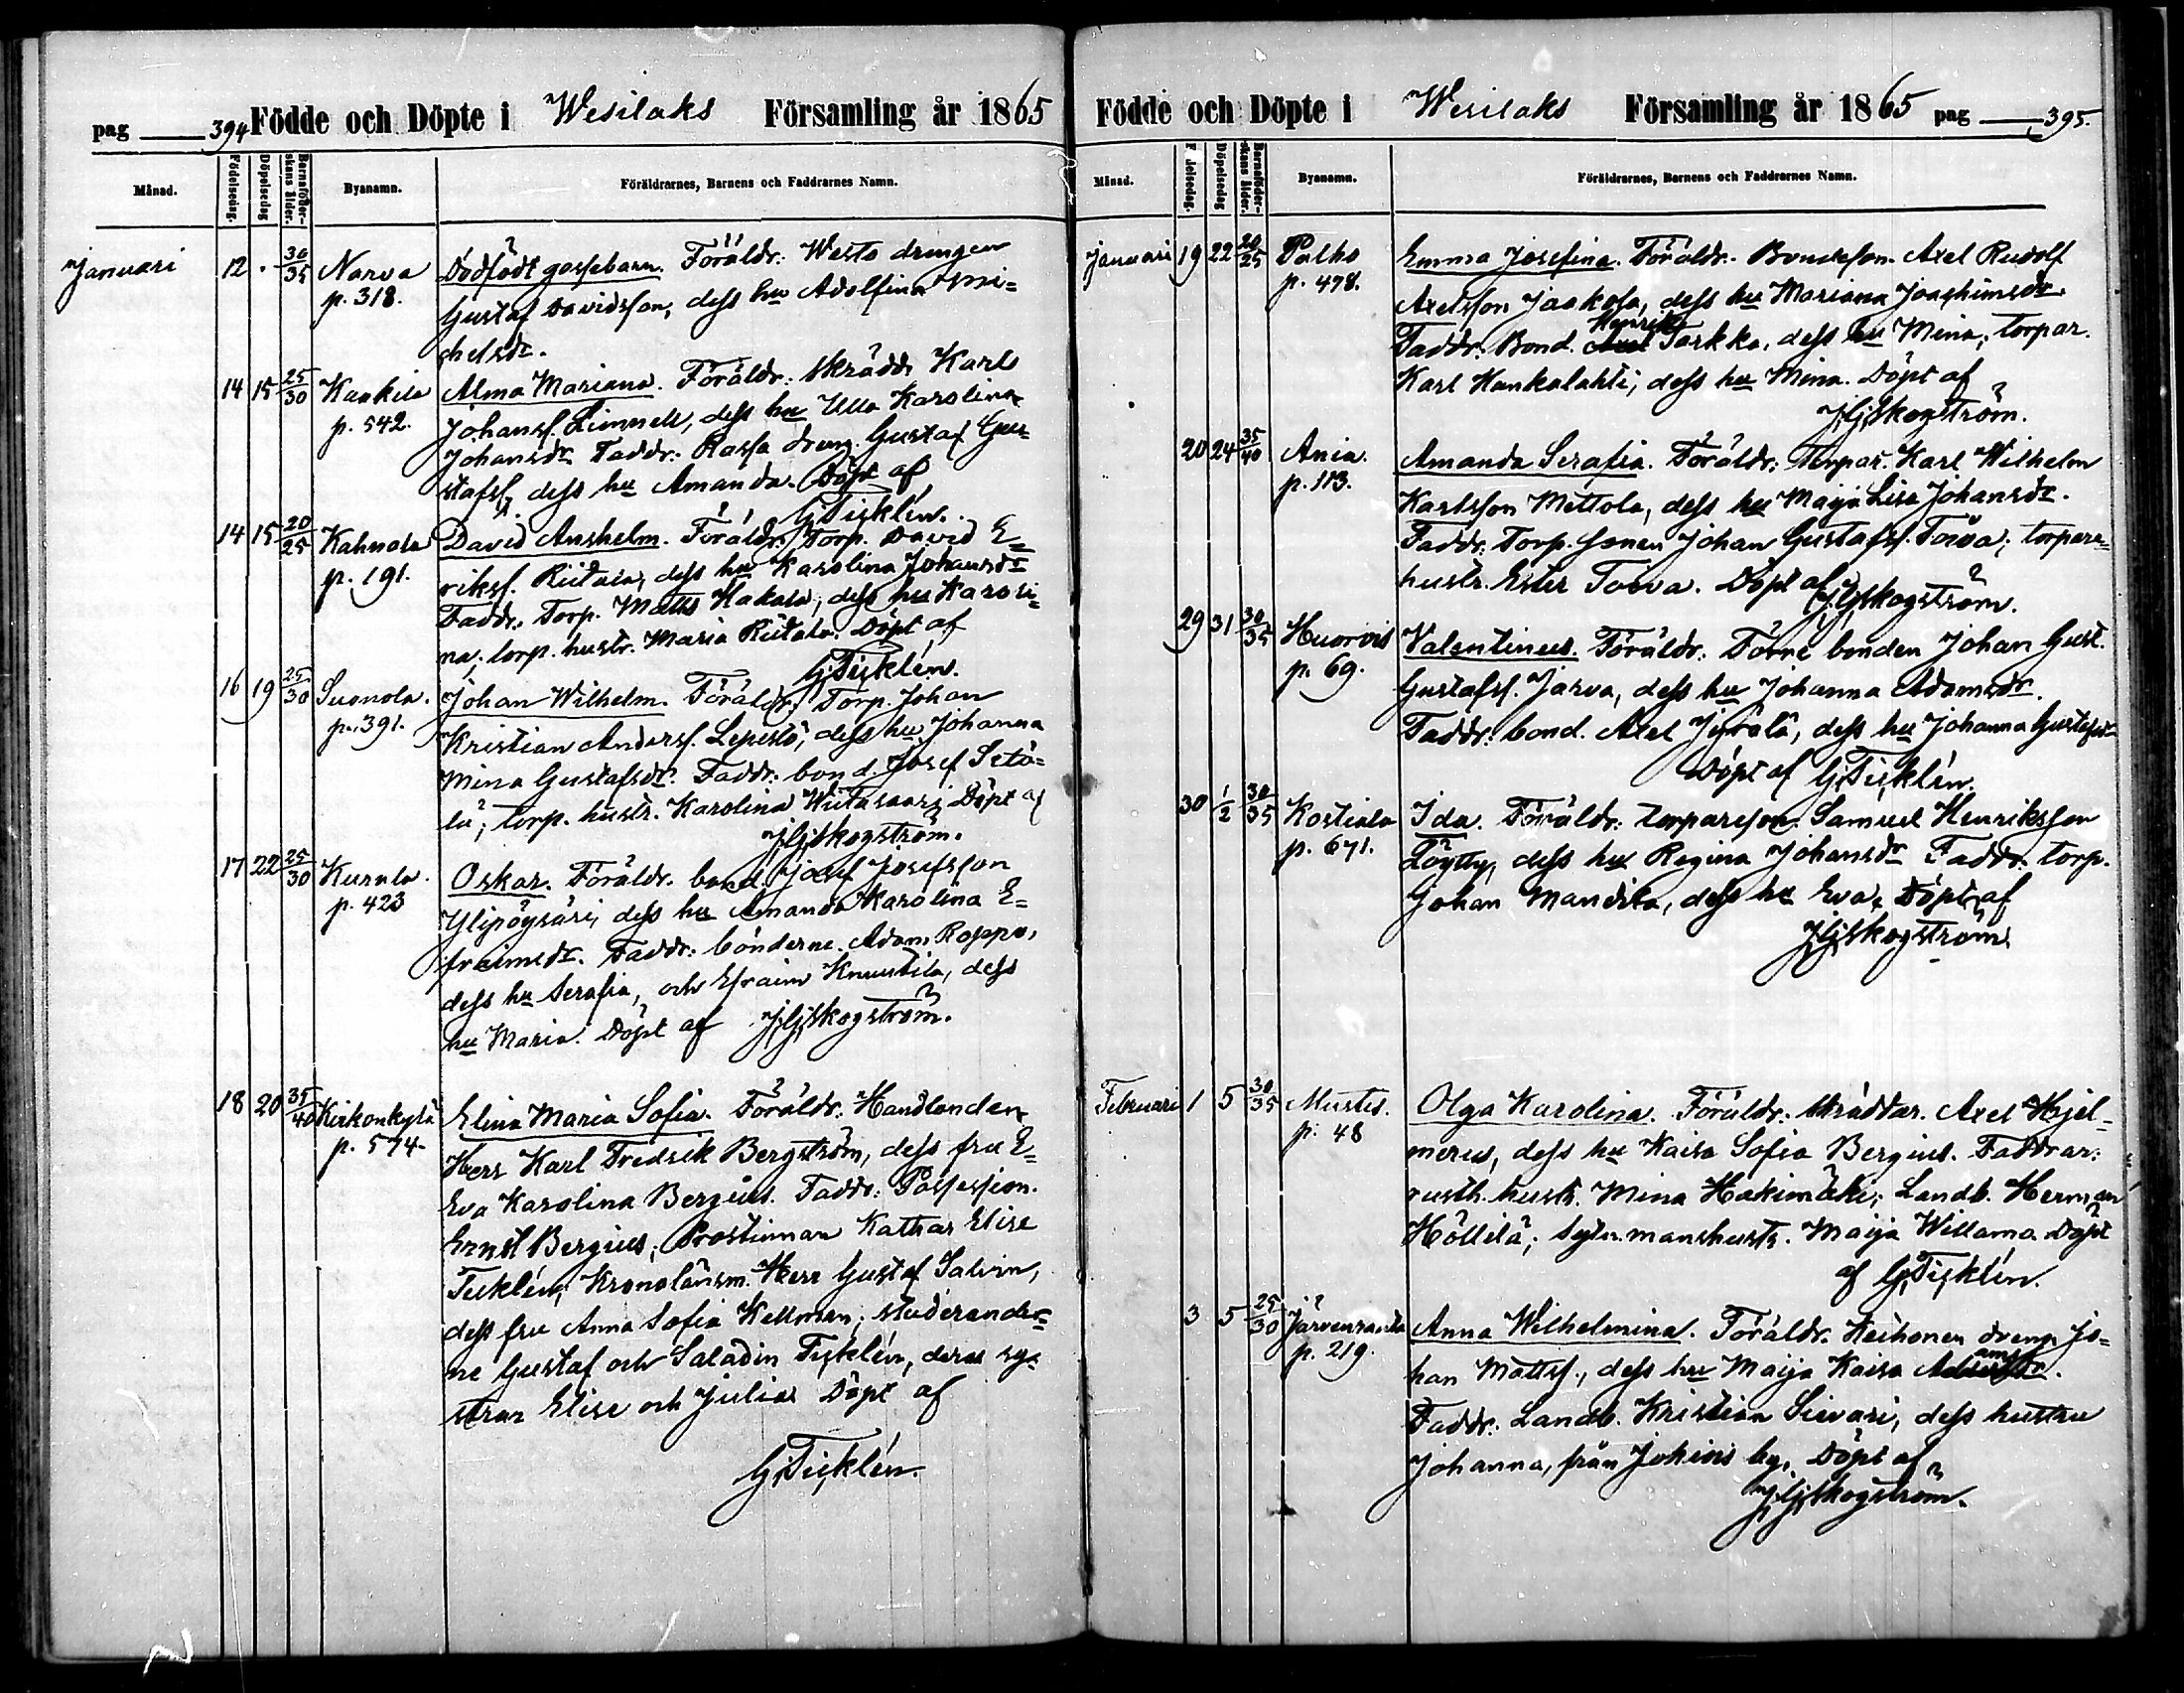 pag 394 Födde och Döpte i Wesilaks Församling år 1865
Månad. Födelsedag. Döpelsedag Barnaföderskans ålder. Byanamn. Föräldrarnes, Barnens och Faddrarnes Namn.
Januari 12 . 30/35 Narva Dödfödt gossebarn. Föräldr: Westo drengen
p. 318. Gustaf Davidsson, dess hu Adolfina Mi=
chelsdr.
14 15 25/30 Kaakila Alma Mariana. Föräldr: Skrädd. Karl
p. 542. Johansf. Limnell, dess hu Ulla Karolina
Johansdr. Faddr: Rassa dreng Gustaf Gus=
tafsf, dess hu Amanda. Döpt af
G. Ticklén.
14 15 20/25 Kahnala David Anshelm. Föräldr: Torp. David E=
p. 191. riksf. Riitala, dess hu Karolina Johansdr
Faddr. Torp. Matts Hakala, dess hu Karoli=
na; torp. hustr. Maria Riitala. Döpt af
G. Ticklén.
16 19 25/30 Suonola. Johan Wilhelm. Föräldr: Torp. Johan
p. 391. Kristian Andersf. Lepistö, dess hu Johanna
Mina Gustafsdr. Faddr: bond. Josef Setä=
lä; torp. hustr. Karolina Wiitasaari Döpt af
J. G. Skogström.
17 22 25/30 Kurala. Oskar. Föräldr. bond. Josef Josefsson
p. 423 Ylipöysäri, dess hu Amanda Karolina E=
fraimsdr. Faddr: bönderne. Adam Roppo,
dess hu Serafia, och Efraim Knuutila, dess
hu Maria. Döpt af J. G. Skogström.
18 20 35/40 Kirkonkylä Elina Maria Sofia. Föräldr: Handlanden
p. 574. Herr Karl Fredrik Bergström, dess fru E=
Eva Karolina Bergius. Faddr: Possession.
Ernst Bergius; Prostinnan Kathar Elise
Ticklén, Kronolänsm. Herr Gustaf Salvin,
dess fru Anna Sofia Kellman; studerander=
ne Gustaf och Saladin Ticklén, deras sy=
strar Elise och Julia Döpt af
G. Ticklén.
Födde och Döpte i Wesilaks Församling år 1865 pag 395.
Månad. Födelsedag. Döpelsedag Barnaföderskans ålder. Byanamn. Föräldrarnes, Barnens och Faddrarnes Namn.
Januari 19 22 20/25 Palho Emma Josefina. Föräldr. Bondeson Axel Rudolf
p. 478. Axelsson Jaakola, dess hu Mariana Joachimsdr
Faddr: Bond. Henrik Tarkka, dess hu Mina; torpar.
Karl Hankalahti; dess hu Mina. Döpt af
J. G. Skogström.
20 24 35/40 Ania. Amanda Serafia. Föräldr: Torpar. Karl Wilhelm
p. 113. Karlsson Mettola, dess hu Maija Lisa Johansdr.
Faddr. Torp. sonen Johan Gustafsf. Toiva; torpare=
hustr. Ester Toiva. Döpt af J. G. Skogström.
29 31 30/35 Huorvis Valentinus. Föräldr: Förre bonden Johan Gust.
p. 69. Gustafsf. Jarva, dess hu Johanna Adamsdr.
Faddr: bond. Axel Jyrälä, dess hu Johanna Gustafsdr
Döpt af G. Ticklén.
30 1/2 30/35 Kostiala Ida. Föräldr: torpareson Samuel Henriksson
p. 671. Löytty, dess hu Regina Johansdr Faddr. torp.
Johan Mandila, dess hu Eva, Döpt af
J. G. Skogström.
Februari 1 5 30/35 Mustis. Olga Karolina. Föräldr: Skräddar. Axel Hjel=
p. 48 merus, dess hu Kaisa Sofia Bergius. Faddrar:
rusth. hustr. Mina Hakimäki; Landb. Herman
Höllilä; Sytn. manshustr. Maija Willama Döpt
af G. Ticklén.
3 5 25/30 Järvenranta Anna Wilhelmina. Föräldr. Heikonen dreng Jo=
p. 219. han Mattsf., dess hu Maija Kaisa Adamsdr.
Faddr. Landb. Kristian Siivari, dess hustru
Johanna, från Jokiois by. Döpt af
J. G. Skogström.